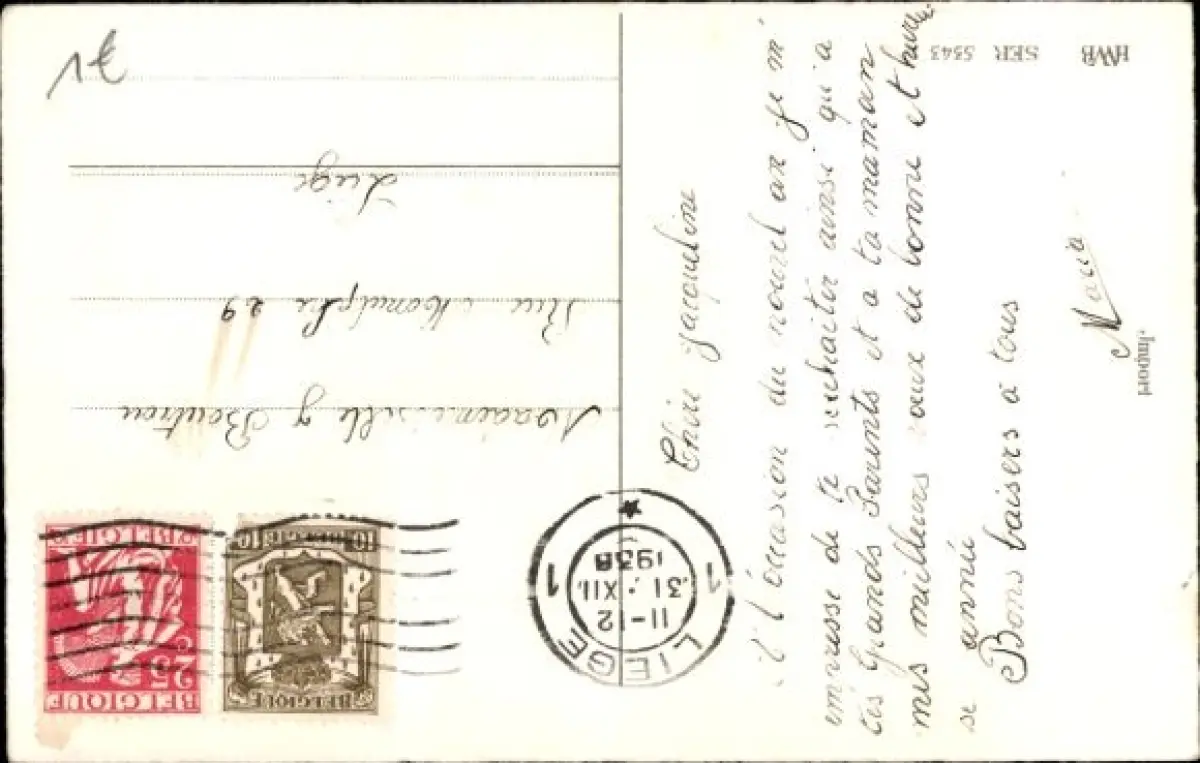 Chère jacqueline
A l'occasion du nouvel an je m'
empresse de te souhaiter ainsi qu'a
tes Grands Parents et a ta maman
mes meilleurs vœux de bonne et heureu
se année
Bons baisers à tous
Maria
Import
HWB SER 5543
Mademoiselle J
Rue 29
Liège
1€
LIEGE 1
11-12
31. XII.
1938
1
BELGIQUE
BELGIE 10
BELGIQUE
25 C
BELGIE